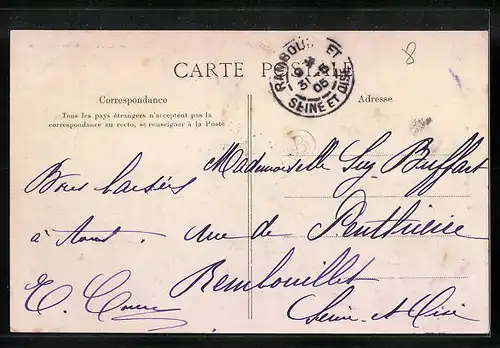 CARTE POSTALE
RAMBOUILLET
31 -8
05
SEINE ET OISE
8
Correspondance
Tous les pays étrangers n'acceptent pas la
correspondance au recto, se renseigner à la Poste
Adresse
Bons baisers
à tous.
Mademoiselle Suz Buffart
rue de Penthièvre
Rambouillet
Seine-et-Oise